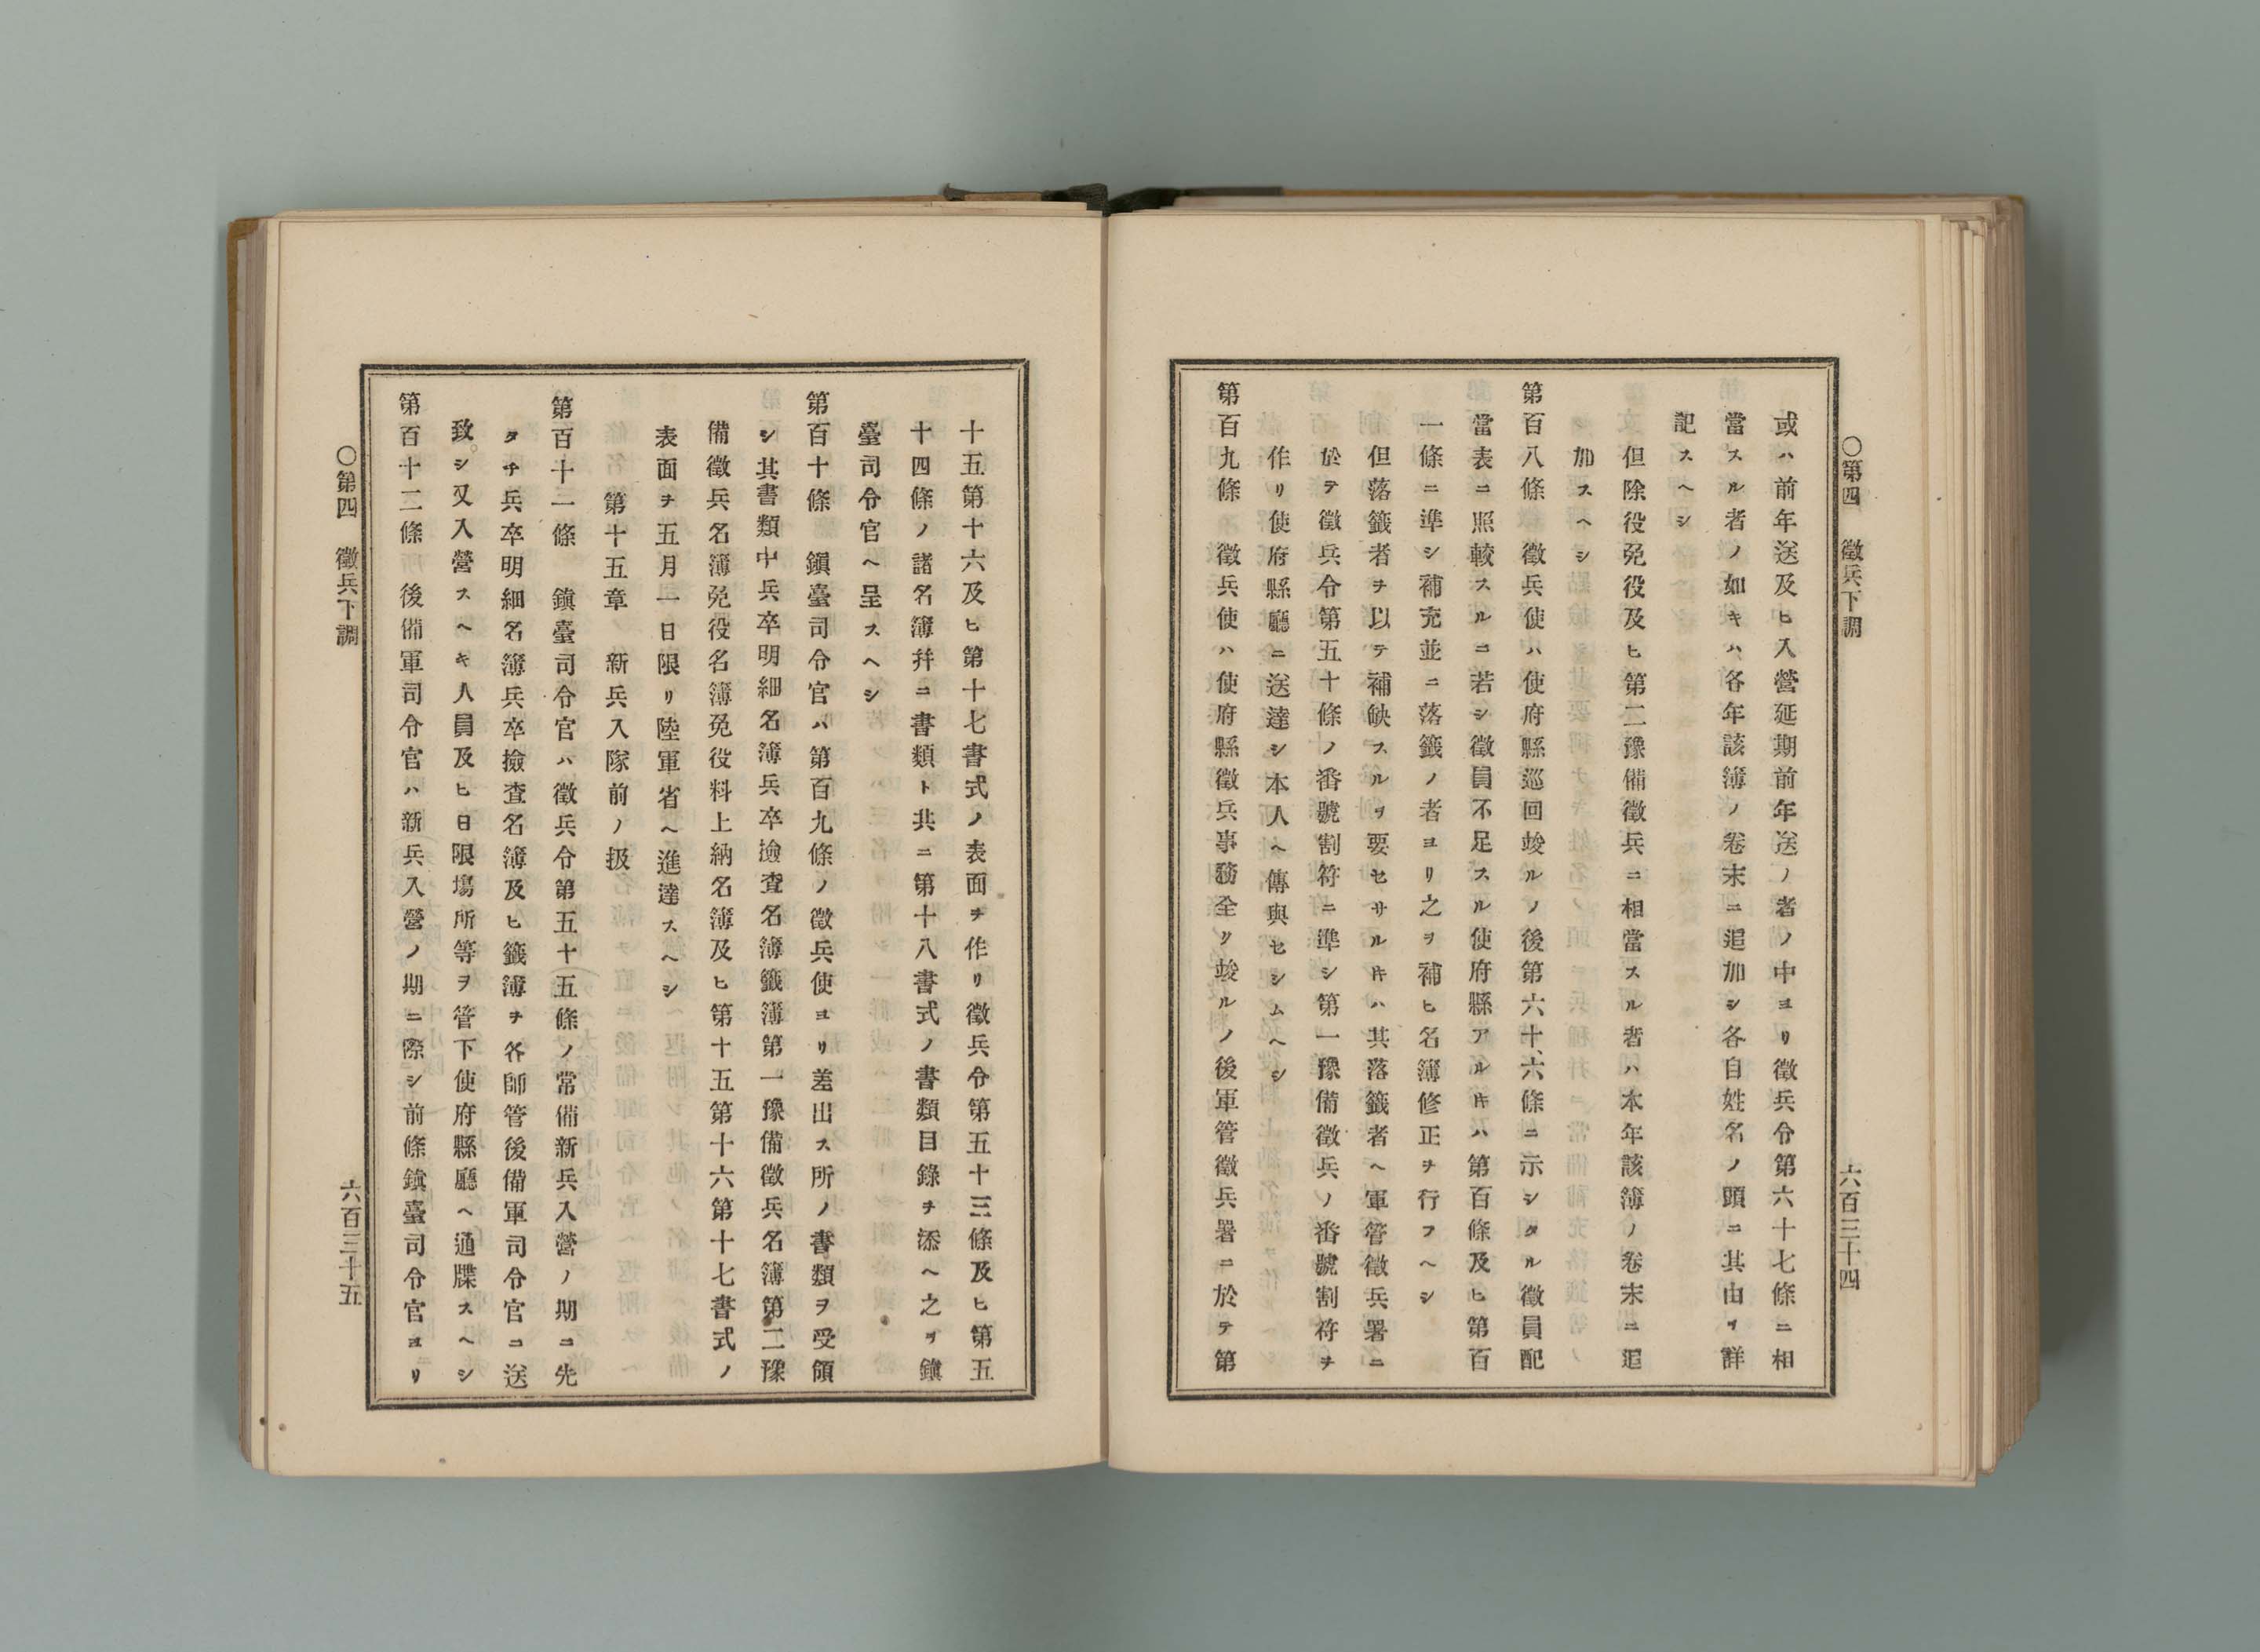 〇第四　徵兵下調
六百三十四
或ハ前年送及ヒ入營延期前年送ノ者ノ中ヨリ徵兵令第六十七條ニ相
當スル者ノ如キハ各年該簿ノ卷末ニ追加シ各自姓名ノ頭ニ其由ヲ詳
記スヘシ
但除役免役及ヒ第二豫備徵兵ニ相當スル者ハ本年該簿ノ卷末ニ追
加スヘシ
第百八條　徵兵使ハ使府縣巡回竣ルノ後第六十六條ニ示シタル徵員配
當表ニ照較スルニ若シ徵員不足スル使府縣アル𪜈ハ第百條及ヒ第百
一條ニ準シ補充並ニ落籤ノ者ヨリ之ヲ補ヒ名簿修正ヲ行フヘシ
但落籤者ヲ以テ補缺スルヲ要セサル𪜈ハ其落籤者ヘ軍管徵兵署ニ
於テ徵兵令第五十條ノ番號割符ニ準シ第一豫備徵兵ノ番號割符ヲ
作リ使府縣廳ニ送達シ本人ヘ傳與セシムヘシ
第百九條　徵兵使ハ使府縣徵兵事務全ク竣ルノ後軍管徵兵署ニ於テ第
十五第十六及ヒ第十七書式ノ表面ヲ作リ徵兵令第五十三條及ヒ第五
十四條ノ諸名簿幷ニ書類ト共ニ第十八書式ノ書類目錄ヲ添ヘ之ヲ鎭
臺司令官ヘ呈スヘシ
第百十條　鎭臺司令官ハ第百九條ノ徵兵使ヨリ差出ス所ノ書類ヲ受領
シ其書類中兵卒明細名簿兵卒撿查名簿籤簿第一豫備徵兵名簿第二豫
備徵兵名簿免役名簿免役料上納名簿及ヒ第十五第十六第十七書式ノ
表面ヲ五月一日限リ陸軍省ヘ進達スヘシ
第十五章　新兵入隊前ノ扱
第百十一條　鎭臺司令官ハ徵兵令第五十五條ノ常備新兵入營ノ期ニ先
タチ兵卒明細名簿兵卒撿查名簿及ヒ籤簿ヲ各師管後備軍司令官ニ送
致シ又入營スヘキ人員及ヒ日限塲所等ヲ管下使府縣廳ヘ通牒スヘシ
第百十二條　後備軍司令官ハ新兵入營ノ期ニ際シ前條鎭臺司令官ヨリ
〇第四　徵兵下調
六百三十五